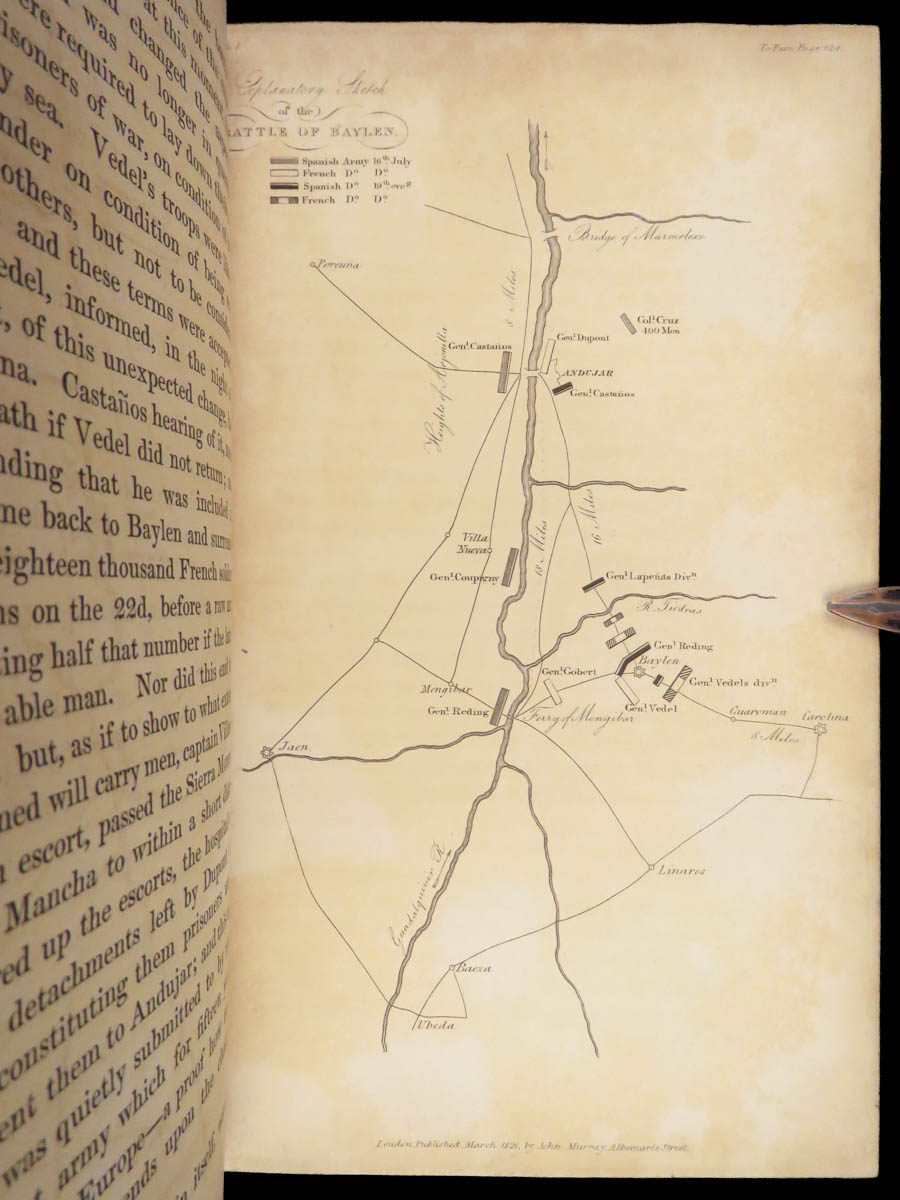 the
nce of the
at this moment
d changed the
was no longer in
ere required to lay down
isoners of war, on condition of
y sea. Vedel's troops were
nder on condition of being
others, but not to be
and these terms were
edel, informed, in the night
, of this unexpected change,
na. Castaños hearing of it,
ath if Vedel did not return;
nding that he was included
me back to Baylen and
eighteen thousand French
ns on the 22d, before a raw
ting half that number if the
able man. Nor did this
but, as if to show to what
ned will carry men, captain
n escort, passed the Sierra
Mancha to within a short
red up the escorts, the
detachments left by
constituting them prisoners
ent them to Andujar; and
was quietly submitted to by
t army which for fifteen
Europe—a proof how
ends upon the
in itself,
To Face Page 124
Explanatory Sketch
of the
BATTLE OF BAYLEN.
Spanish Army 16th July
French Do Do
Spanish Do 19th eveg
French Do Do
Bridge of Marmolexo
Porcuna
8 Miles
Coll Cruz
400 Men
Genl Castaños
Genl Dupont
Heights of Argonilla
ANDUJAR
Genl Castaños
16 Miles
18 Miles
Villa
Nueva
Genl Coupigny
Genl Lapeñas Divn
R. Tiedras
Genl Reding
Baylen
Genl Gobert
Genl Vedels divn
Mengibar
Genl Vedel
Genl Reding
Ferry of Mengibar
Guaroman
Carolina
8 Miles
Jaen
Guadalquivir R.
Linares
Baeza
Ubeda
London, Published, March, 1826, by John Murray, Albemarle Street.